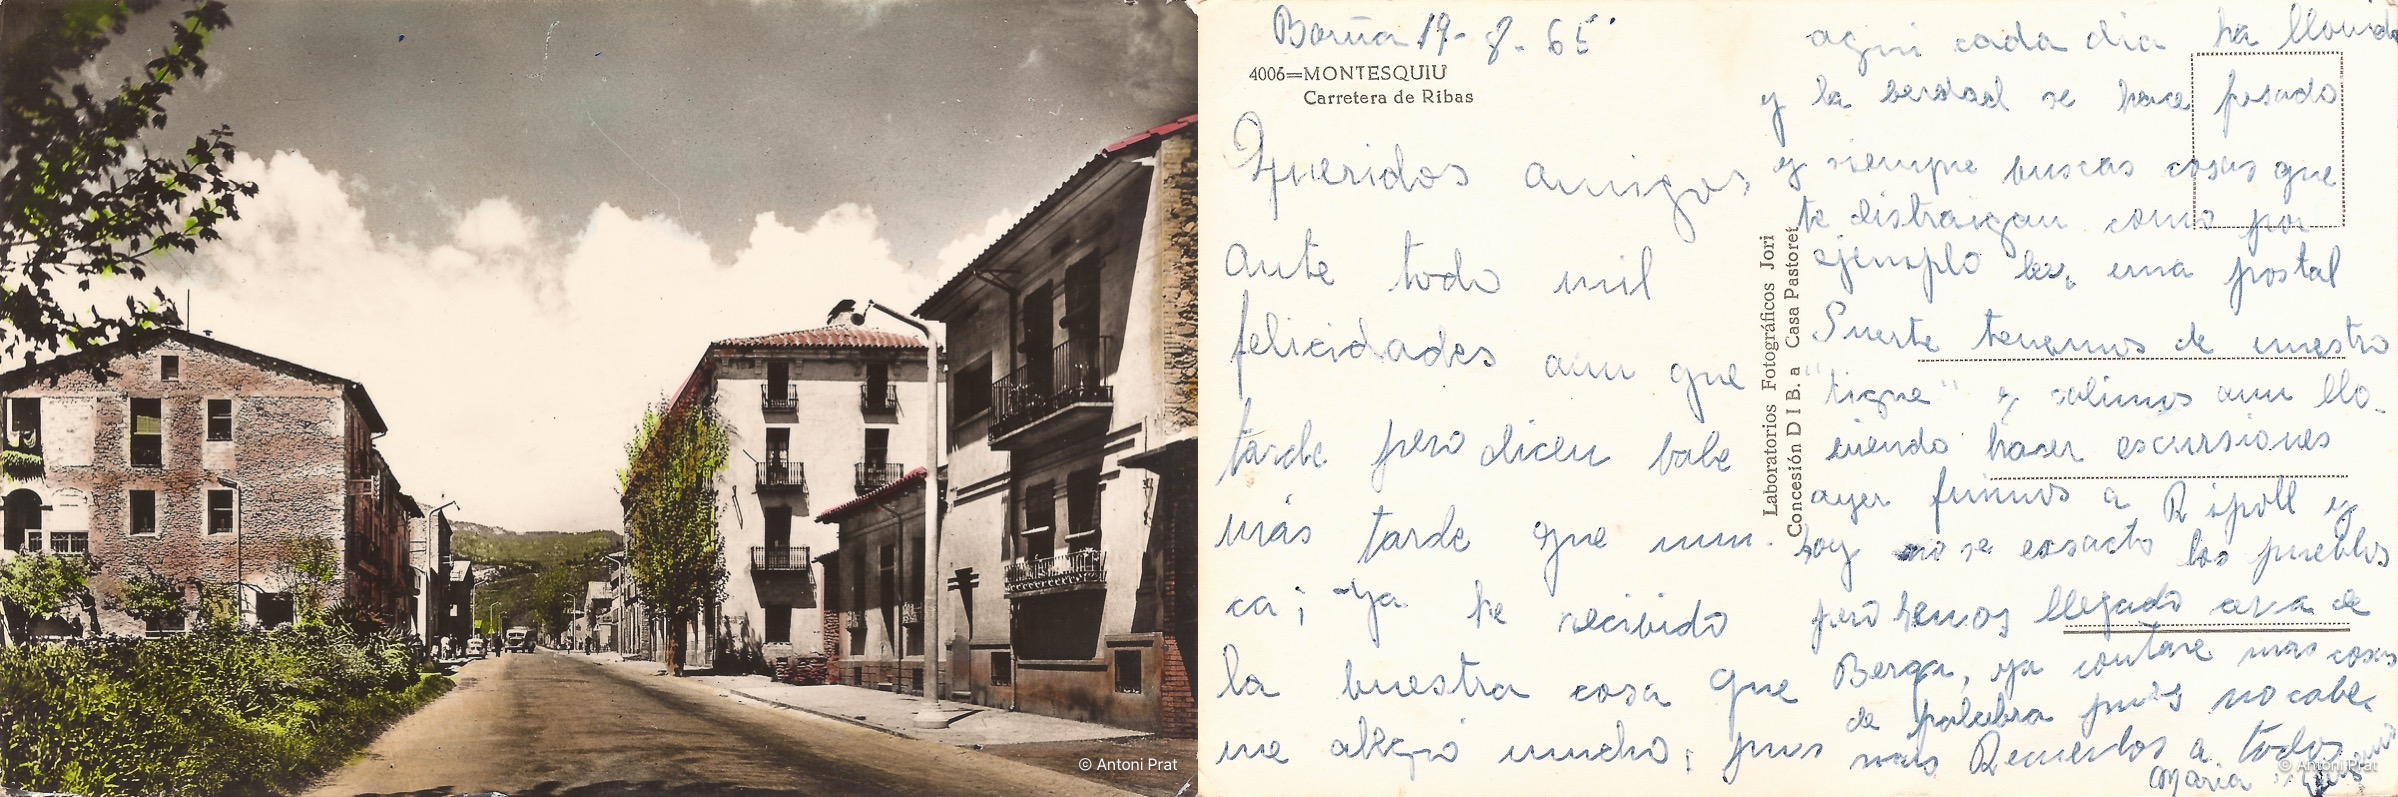 © Antoni Prat
19-8-65
4006=MONTESQUIU
Carretera de Ribas
Queridos amigos
ante todo mil
felicidades aun que
tarde pero dicen bale
más tarde que nun-
ca; Ya he recibido
la buestra cosa que
me alegró mucho; pues
Laboratorios Fotográficos Jori
Concesión D I B. a Casa Pastoret
aqui cada dia ha llovido
y la berdad se hace pesado
y siempre buscas cosas que
te distraigan como por
ejemplo una postal
Suerte tenemos de nuestro
"tigre" y salimos aun llo-
viendo hacer escursiones
ayer fuimos a Ripoll y
hoy no se exsacto los pueblos
pero hemos llegado cerca de
Berga, ya contare mas cosas
de palabra pues no cabe
mas Recuerdos a todos
Maria
© Antoni Prat